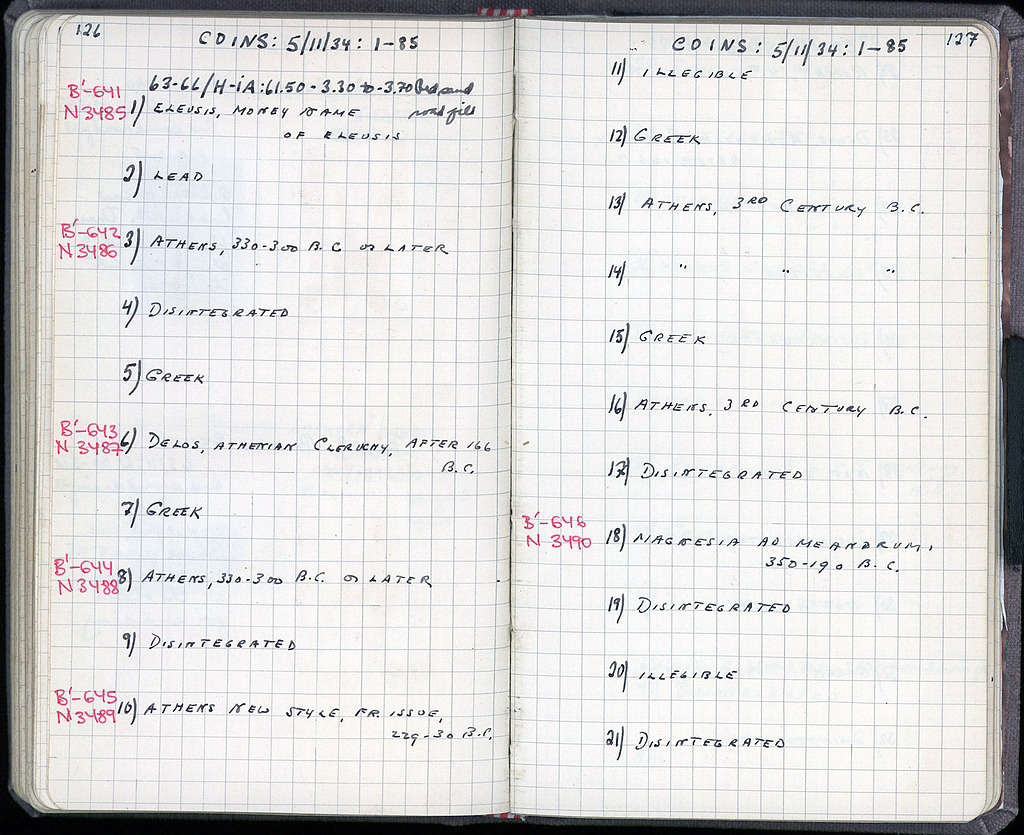 126
COINS: 5/11/34: 1-85
63-66/H-IA: 61.50 - 3.30 to -3.70 Bed and
road fill
B'-641
N 3485 1) ELEUSIS, MONEY NAME
OF ELEUSIS
2) LEAD
B'-642
N 3486 3) ATHENS, 330-300 B.C. OR LATER
4) DISINTEGRATED
5) GREEK
B'-643
N 3487 6) DELOS, ATHENIAN CLERUCHY, AFTER 166
B.C.
7) GREEK
B'-644
N 3488 8) ATHENS, 330-300 B.C. OR LATER
9) DISINTEGRATED
B'-645
N 3489 10) ATHENS NEW STYLE, FR. ISSUE,
229-30 B.C.
127
COINS: 5/11/34: 1-85
11) ILLEGIBLE
12) GREEK
13) ATHENS, 3RD CENTURY B.C.
14) " " "
15) GREEK
16) ATHENS, 3RD CENTURY B.C.
17) DISINTEGRATED
B'-646
N 3490 18) MAGNESIA AD MEANDRUM,
350-190 B.C.
19) DISINTEGRATED
20) ILLEGIBLE
21) DISINTEGRATED